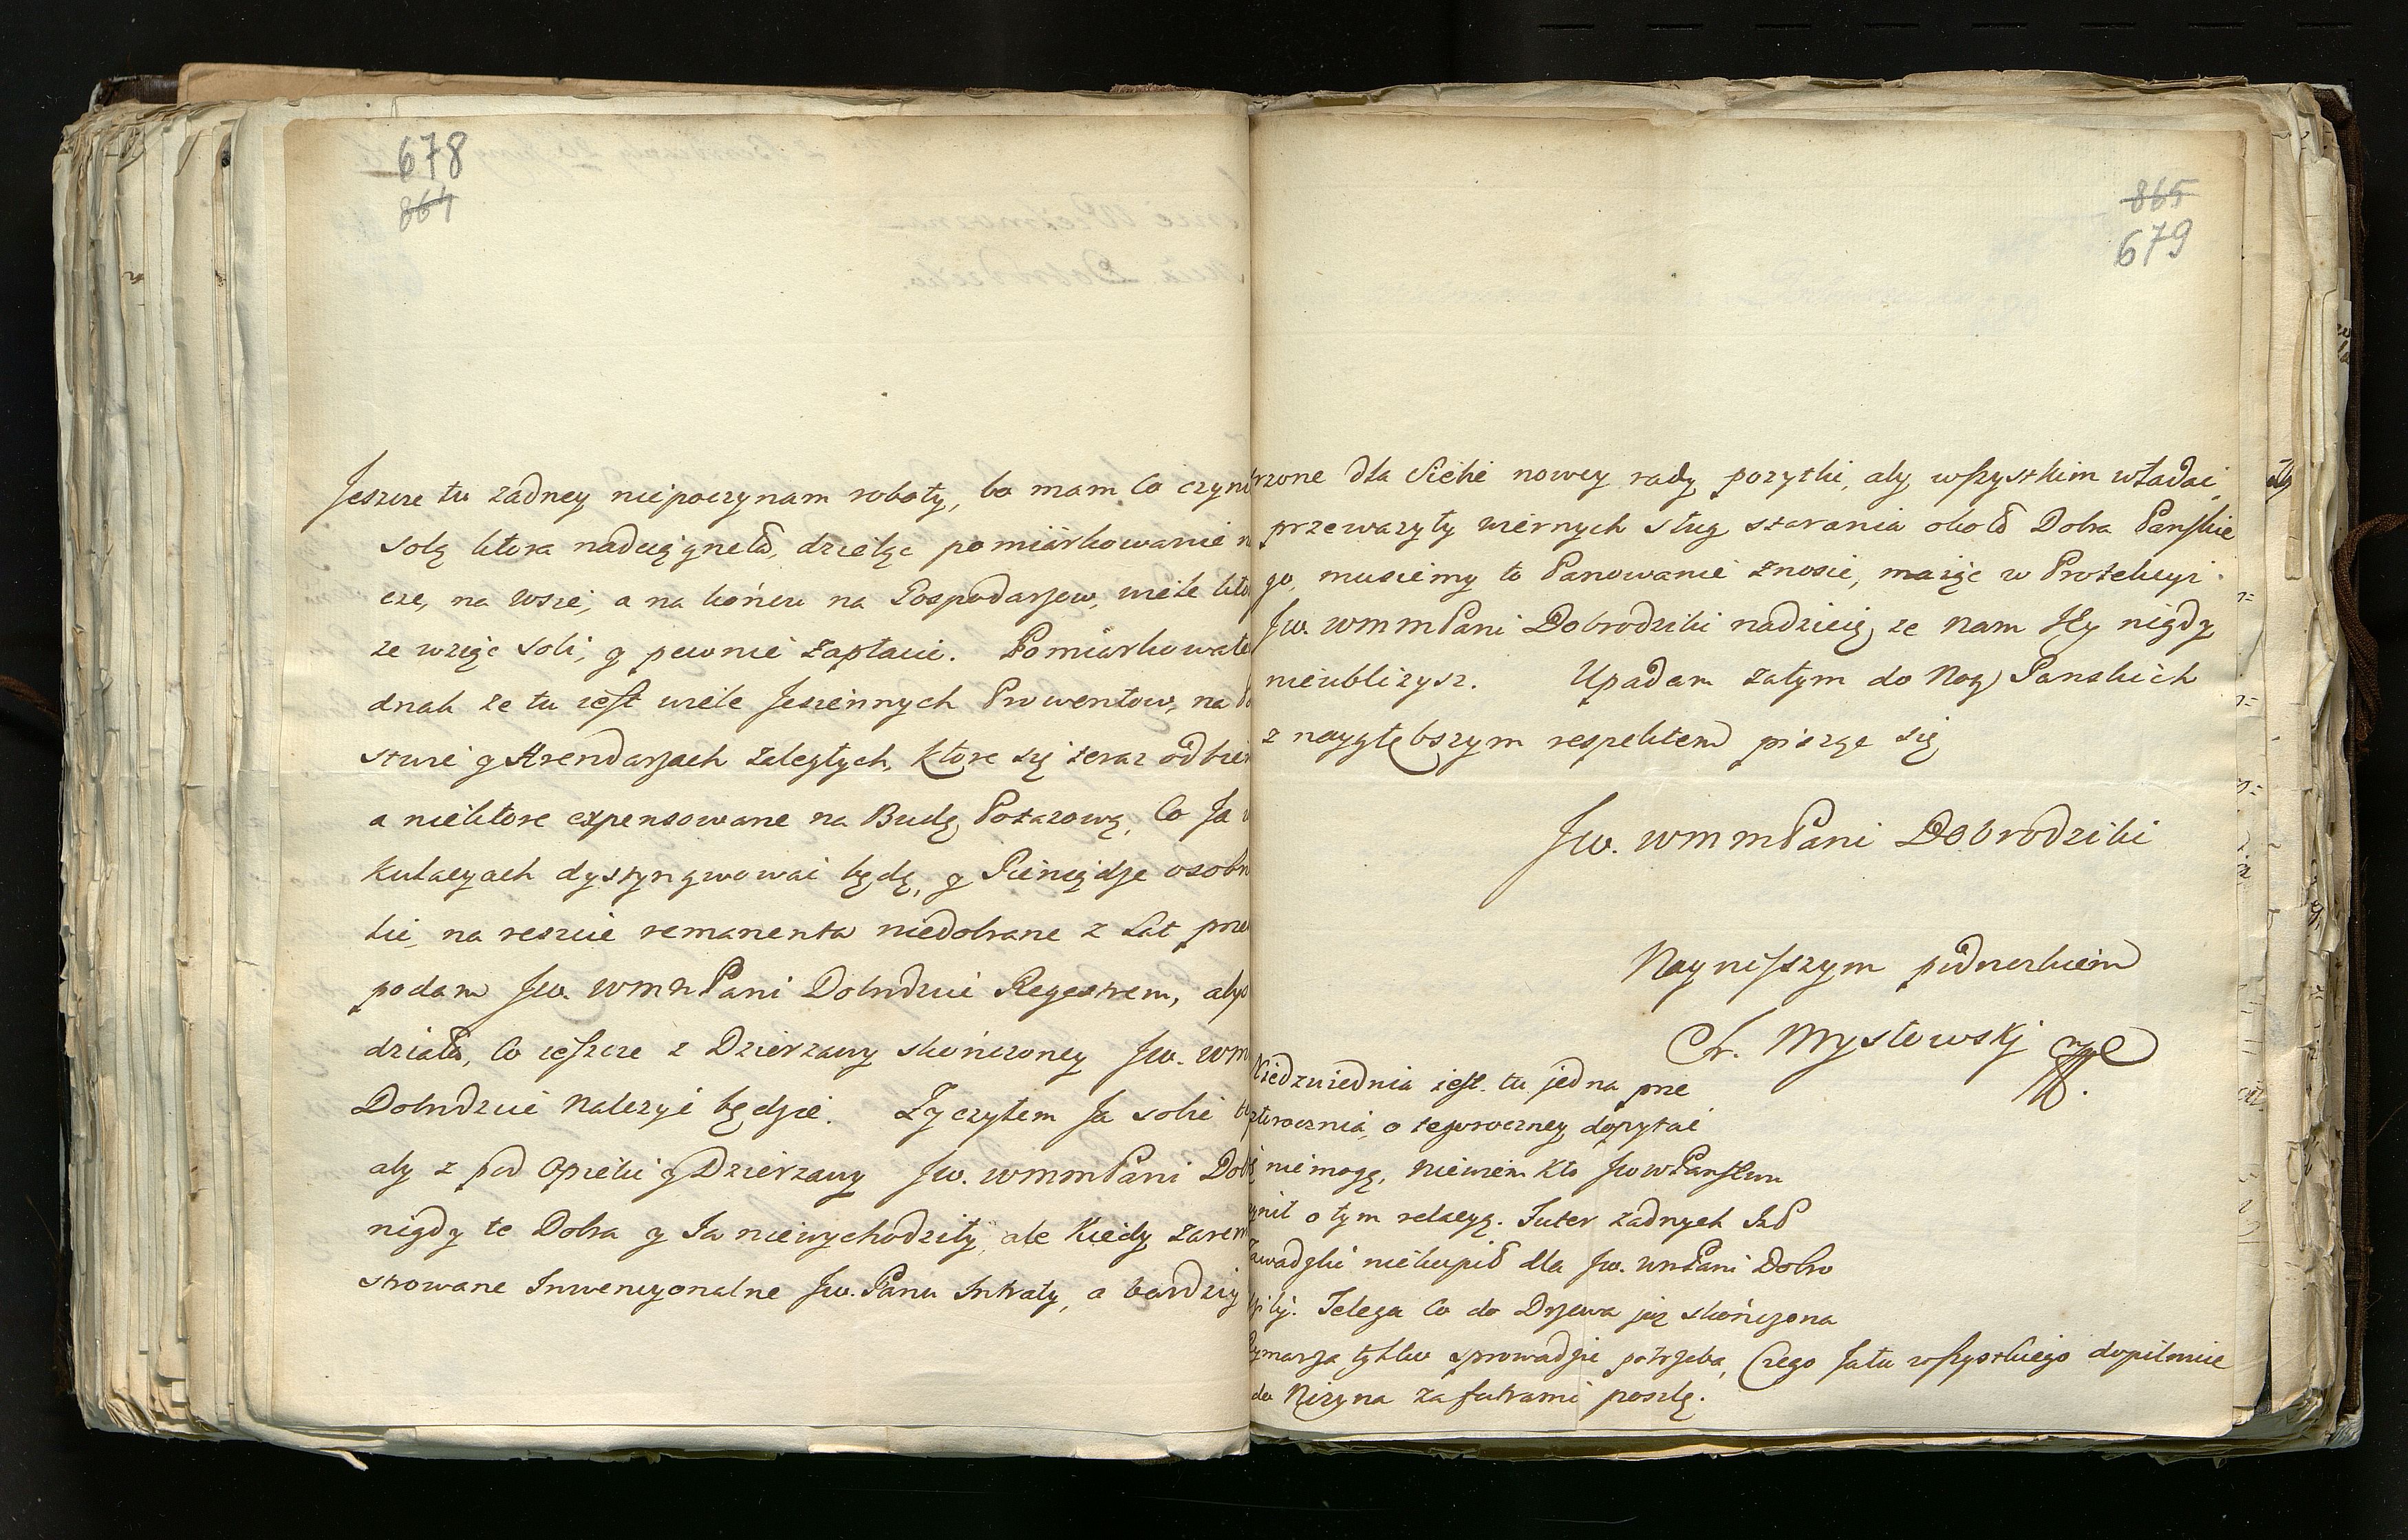 678
864
Jeszcze tu zadney niepoczynam roboty, bo mam co czyni
solą ktora nadciągneła, dzieląc pomiarkowanie n
cze, na wsie, a na końcu na Pospodarzow, wiele kto
ze wziąc soli, y pewnie zapłacic. Pomiarkowałe
dnak ze tu iest wiele Jesiennych Prowentow, na
stwie y Arendarzach zaległych, ktore się teraz odbier
a niektore expensowane na Budę Potazową, co Ja
kulacyach dystyngwowac będę, y Pieniądze osobn
kie, na reszcie remanenta niedobrane z Lat prze
podam Jw. WmmPani Dobrdzice Regestrem, aby
działa, co ieszcze z Dzierzawy skończoney Jw. Wm
Dobrdzice nalezyc będzie. Zyczyłem Ja sobie
aby z pod Opieki y Dzierzawy Jw. WmmPani Dob
nigdy te Dobra y Ja niewychodziły, ale kiedy zarem
strowane Inwencyonalne Jw. Panu Intraty, a bardziy
865
679
rzone dla Siebie nowey rady pozytki, aby wszystkim władac
przewazyły wiernych sług starania około Dobra Panskie
go, musiemy to Panowanie znosic, maiąc w Protekcyi
Jw. WmmPani Dobrodziki nadzieię, ze nam Jey nigdy
nieublizysz. Upadam zatym do Nog Panskich
z naygłębszym respektem pisząc się
Jw. WmmPani Dobrodziki
Nayniszszym podnozkiem
Mysłowskj
Niedzwiednia iest tu jedna prze
złorocznia, o tegoroczney dopytac
niemogę, niewiem kto JwwPanstwu
ynił o tym relacyą. Futer zadnych
Zawadzki niekupił dla Jw. WmPani Dobro
Telega co do Drzewa juz skończona
Rymarza tylko sprowadzic potrzeba, czego Jatu wszystkiego dopilnuie
do Nizyna za futrami poszlę.